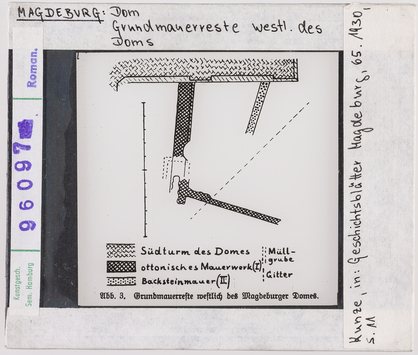 MAGDEBURG: Dom
Grundmauerreste westl. des
Doms
Roman.
96097
Kunstgesch.
Sem. Hamburg
Südturm des Domes
ottonisches Mauerwerk (I)
Backsteinmauer (II)
Müll-
grube
Gitter
Abb. 3. Grundmauerreste westlich des Magdeburger Domes.
Kunze, in: Geschichtsblätter Magdeburg, 65. 1930,
S. 11